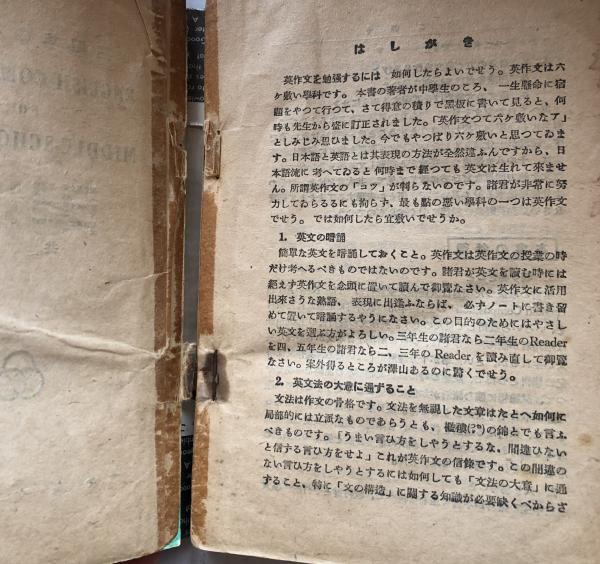 はしがき
英作文を勉强するには 如何したらよいでせう。英作文は六
ケ敷い學科です。 本書の著者が中學生のころ、 一生懸命に宿
題をやつて行つて、さて得意の積りで黑板に書いて見ると、何
時も先生から盛に訂正されました。「英作文つて六ケ敷いなア」
としみじみ思ひました。今でもやつぱり六ケ敷いと思つてゐま
す。日本語と英語とは其表現の方法が全然違ふんですから、日
本語流に 考へてゐると 何時まで經つても 英文は生れて來ませ
ん。所謂英作文の「コツ」が判らないのです。諸君が非常に努
力してゐらるるにも拘らず、最も點の惡い學科の一つは英作文
でせう。 では如何したら宜敷いでせうか。
1. 英文の暗誦
簡單な英文を暗誦しておくこと。英作文は英作文の授業の時
だけ考へるべきものではないのです。諸君が英文を讀む時には
絕えず英作文を念頭に置いて讀んで御覽なさい。英作文に活用
出來さうな熟語、 表現に出逢ふならば、 必ずノートに書き留
めて置いて暗誦するやうになさい。この目的のためにはやさし
い英文を選ぶ方がよろしい。三年生の諸君なら二年生のReader
を四、五年生の諸君なら二、三年の Reader を讀み直して御覽
なさい。案外得るところが澤山あるのに驚くでせう。
2. 英文法の大意に通ずること
文法は作文の骨格です。文法を無視した文章はたとへ如何に
局部的には立派なものであらうとも、襤褸(ぼろ)の錦とでも言ふ
べきものです。「うまい言ひ方をしやうとするな、間違ひない
と信ずる言ひ方をせよ」これが英作文の信條です。この間違の
ない言ひ方をしやうとするには如何しても「文法の大意」に通
ずること、特に「文の構造」に關する知識が必要缺くべからさ